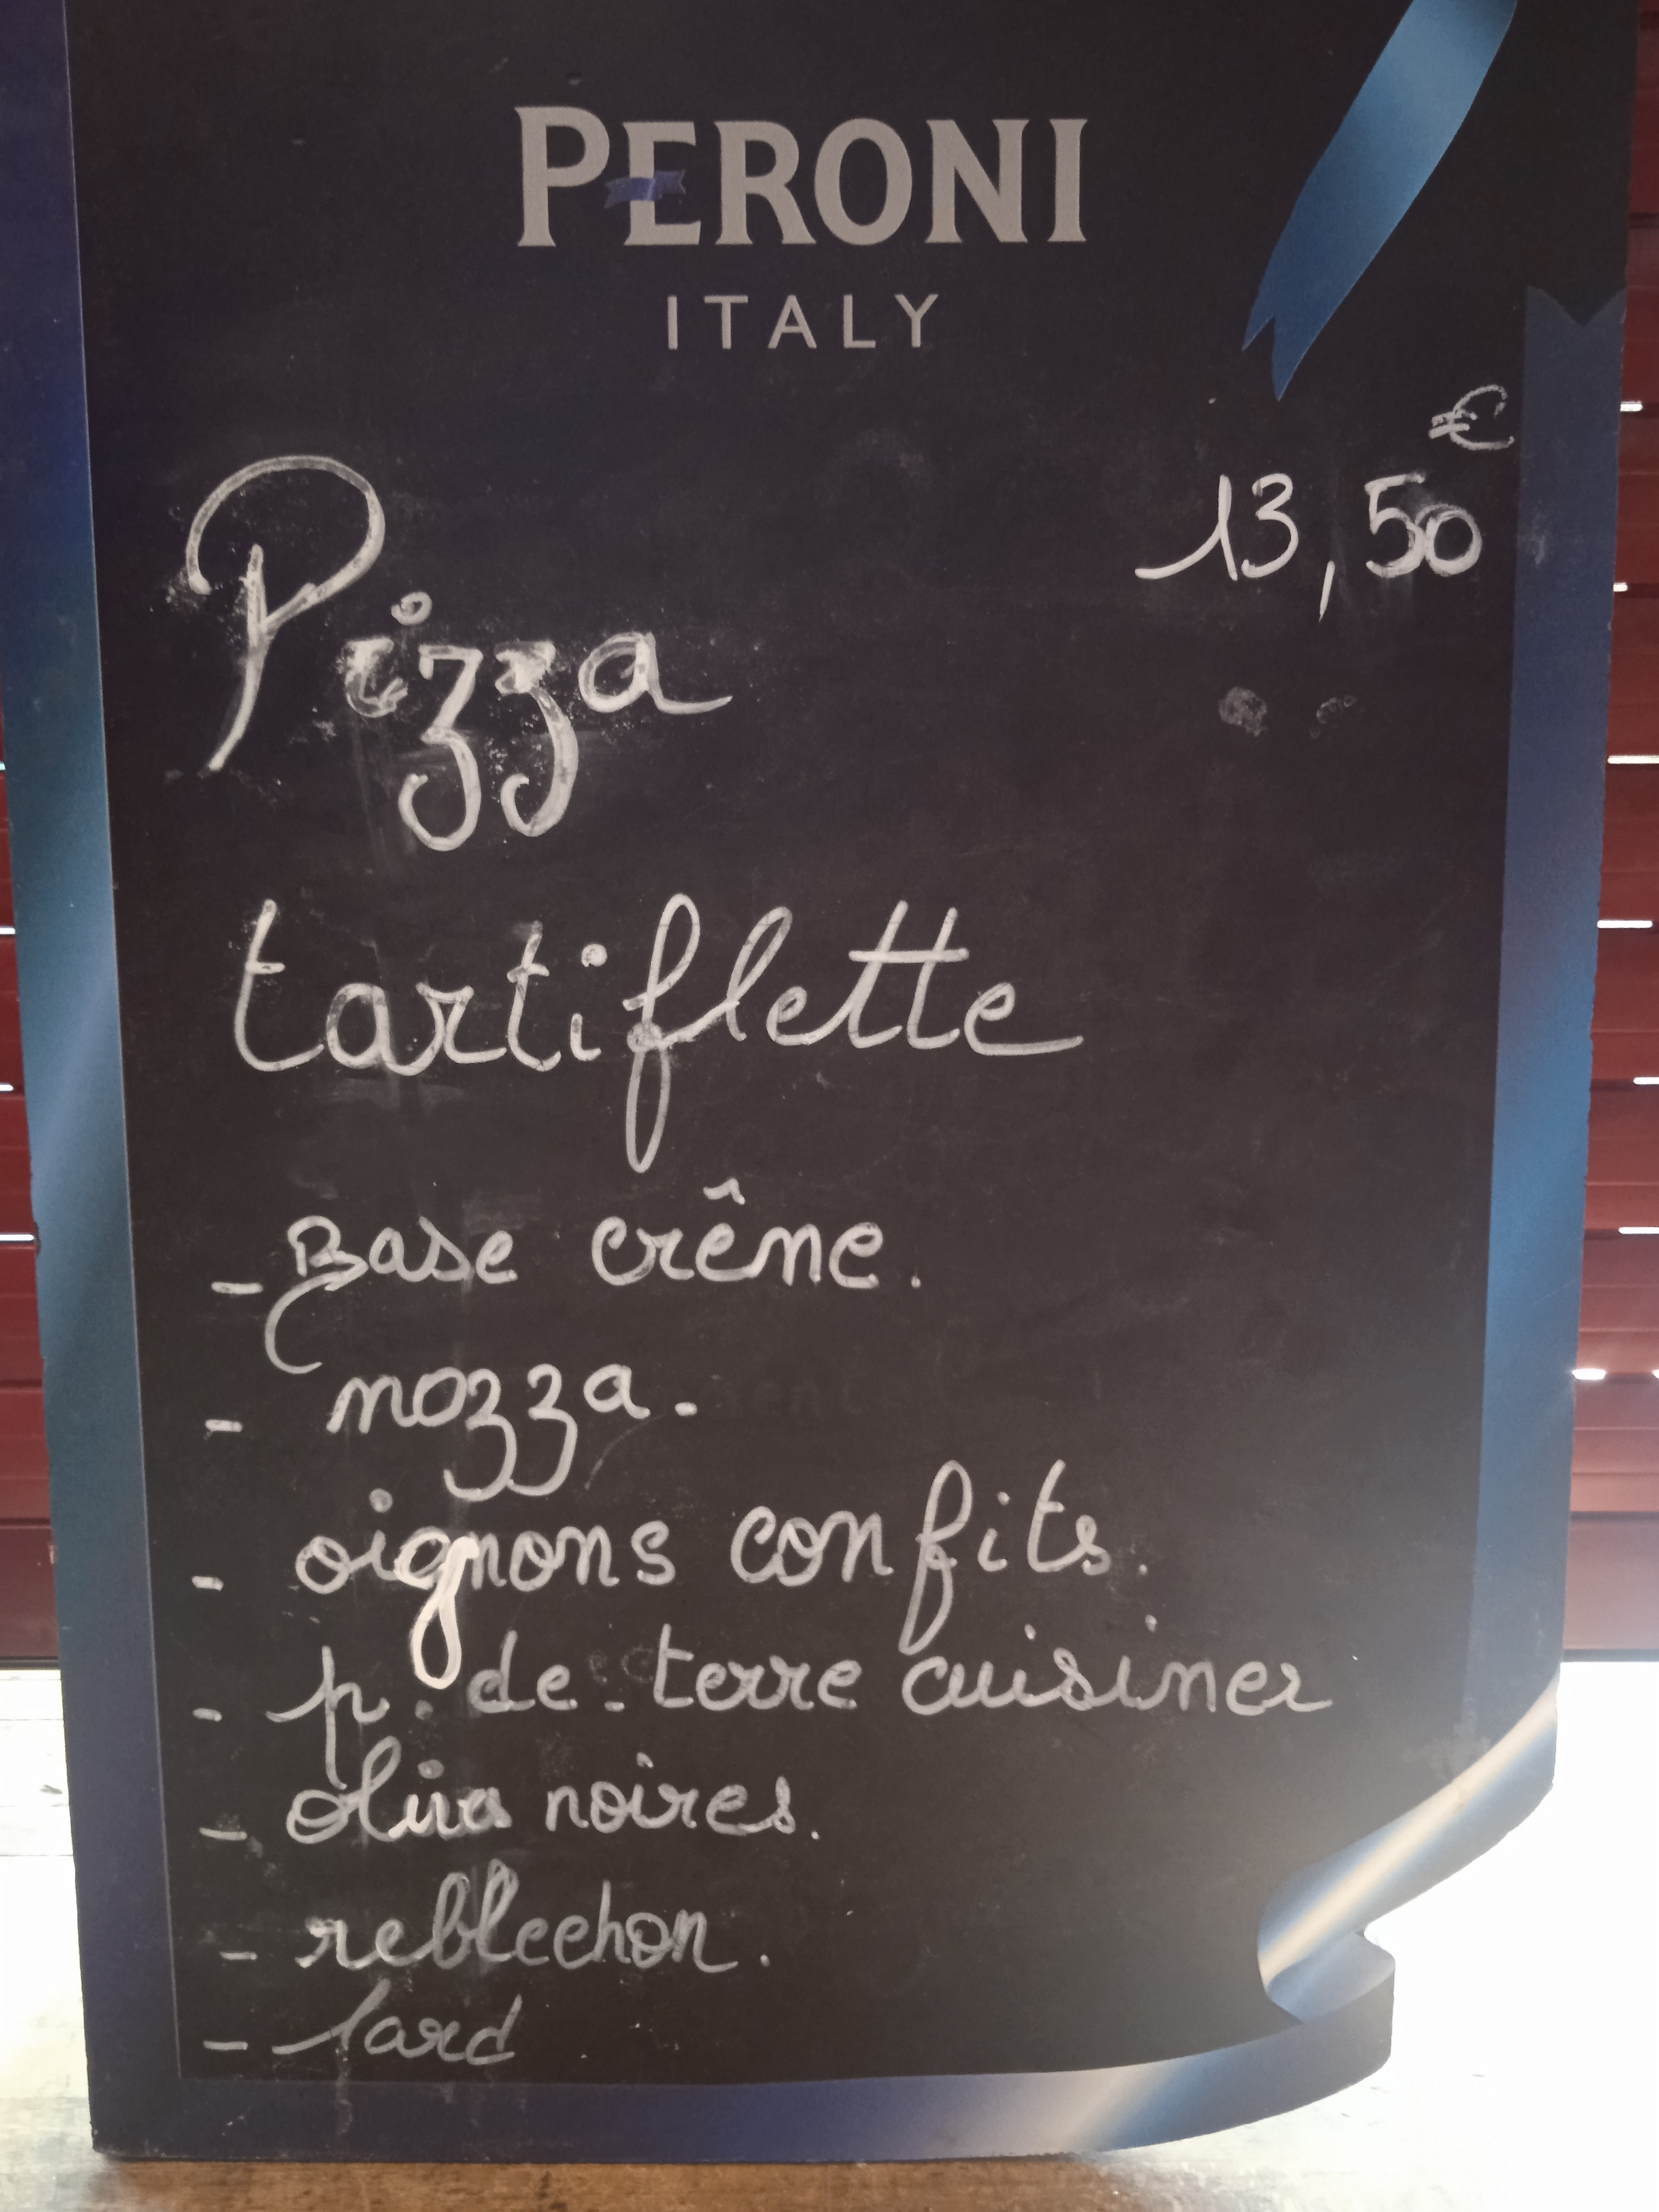 PERONI
ITALY
€
13,50
Pizza
tartiflette
- Base crême.
- mozza.
- oignons confits.
- p. de terre cuisiner
- olives noires.
- reblechon.
- lard